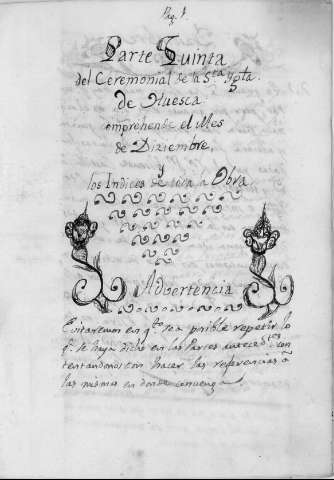 Pag. 1.
Parte Quinta
del Ceremonial de la Sta. Ygla.
de Huesca
comprehende el Mes
de Diziembre,
y
los Indices de toda la Obra.
Advertencia
Evitaremos en qto. sea posible repetir lo
q. se haya dicho en las Partes antecedtes. con
tentandonos con hacer las referencias a
las mismas en donde convenga